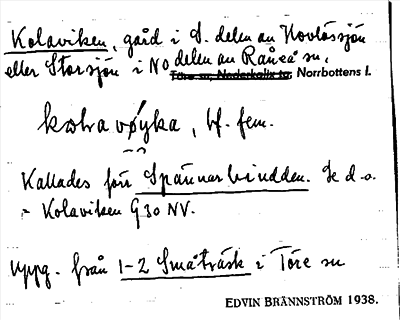 Kolaviken, gård i S. delen av Hovlössjön
eller Storsjön i NO delen av Råneå sn,
Töre sn, Nederkalix td, Norrbottens l.
kɷlravøyka, bf. fem.
Kallades förr Spännarhindden. Se d.o.
- Kolaviken G30 NV.
Uppg. från 1-2 Småträsk i Töre sn
EDVIN BRÄNNSTRÖM 1938.